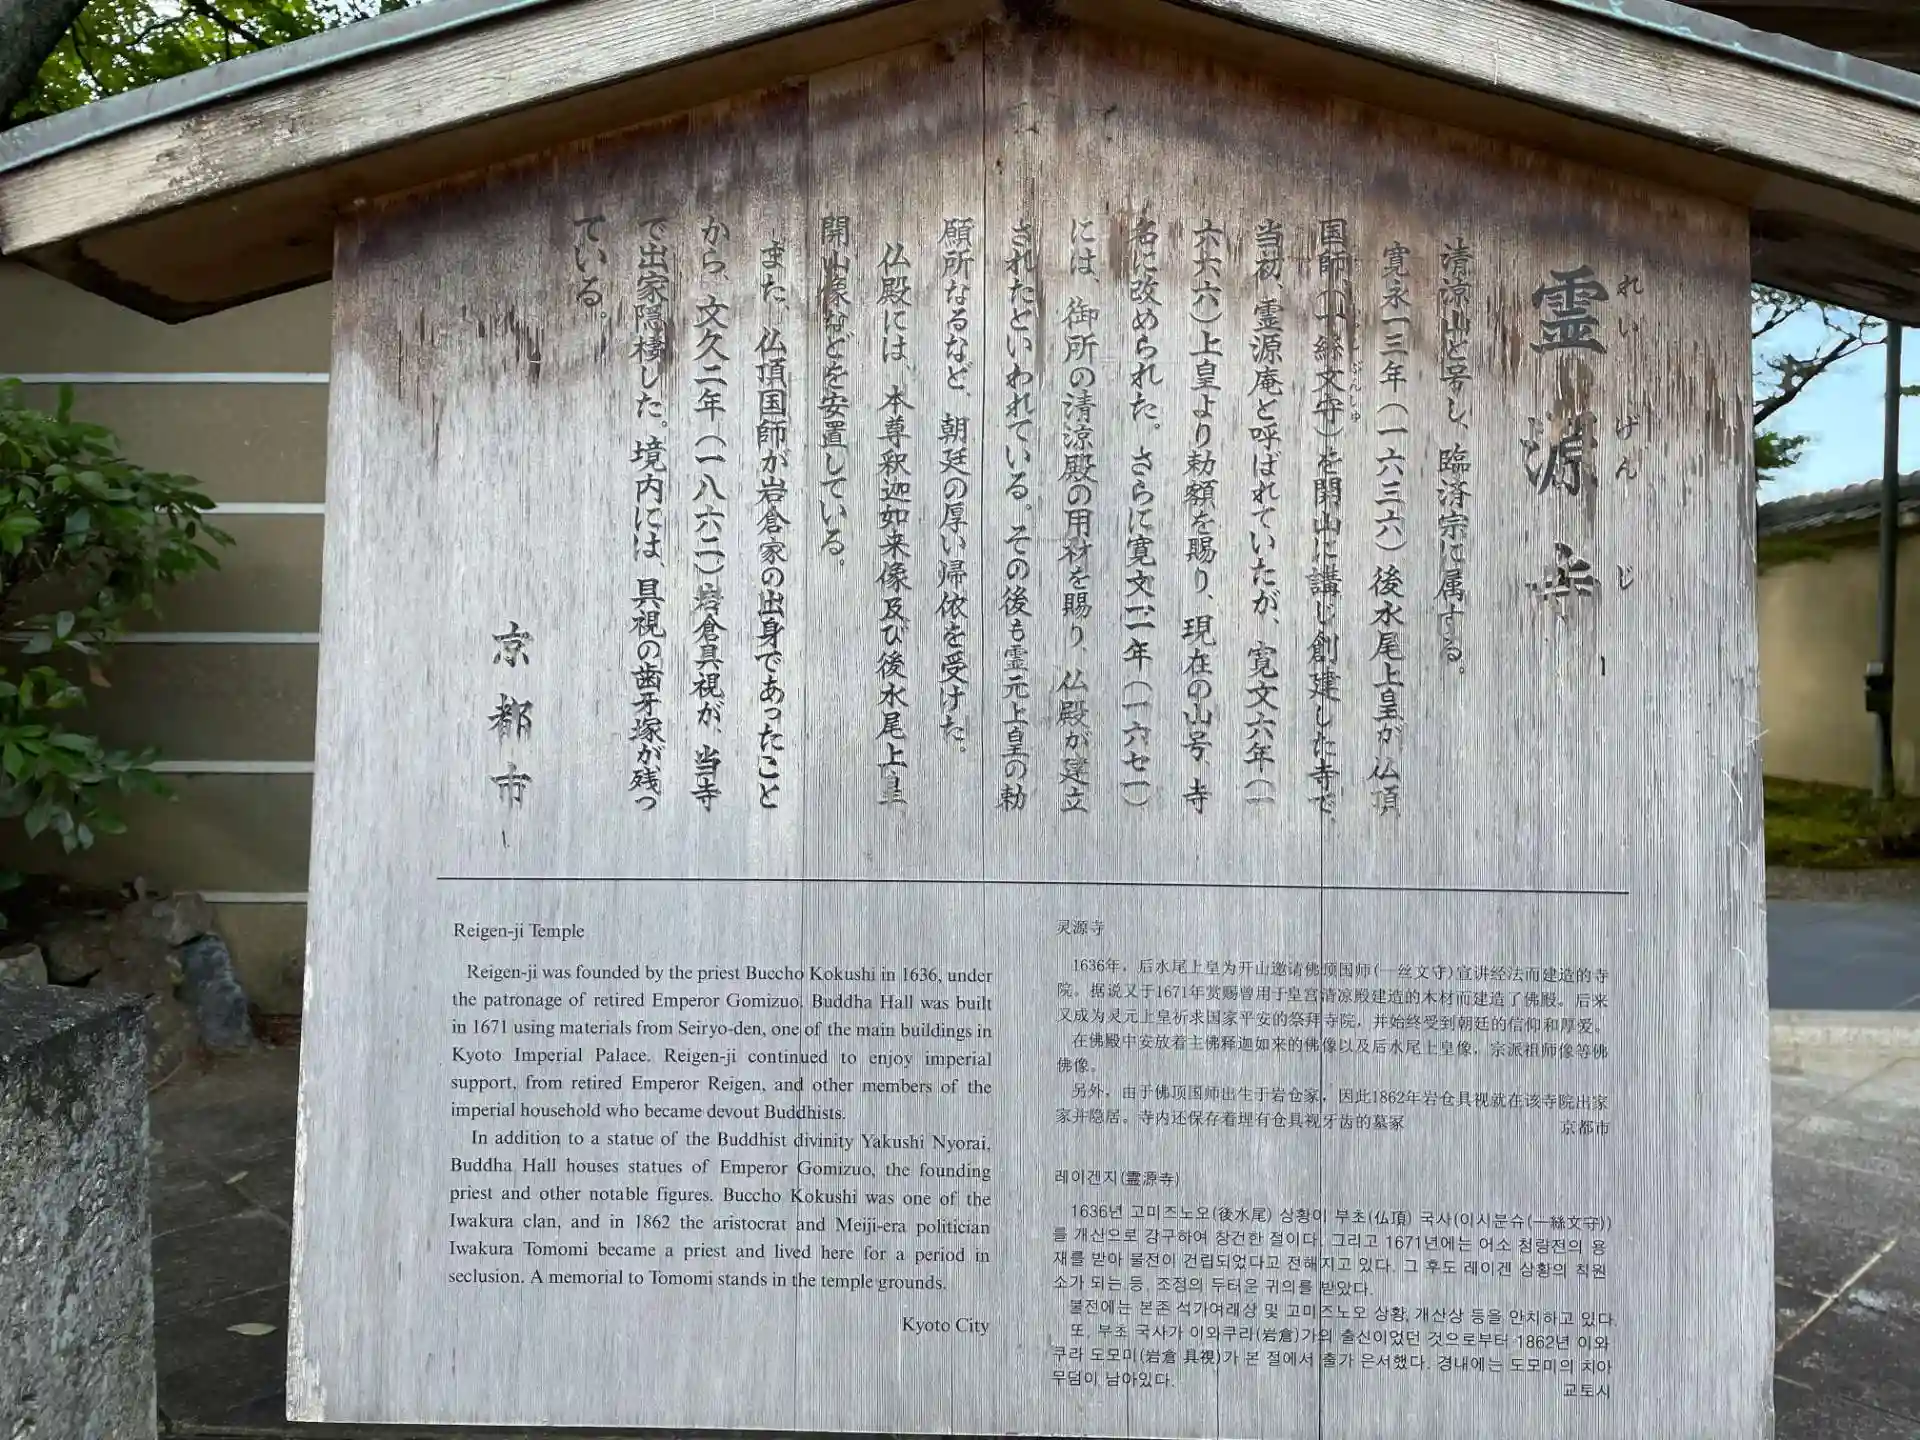 霊源寺
れいげんじ
清涼山と号し、臨済宗に属する。
寛永一三年(一六三六)後水尾上皇が仏頂
国師(一絲文守)を開山に講じ創建した寺で、
ぶんしゅ
当初、霊源庵と呼ばれていたが、寛文六年(一
六六六)上皇より勅額を賜り、現在の山号、寺
名に改められた。さらに寛文一一年(一六七一)
には、御所の清涼殿の用材を賜り、仏殿が建立
されたといわれている。その後も霊元上皇の勅
願所なるなど、朝廷の厚い帰依を受けた。
仏殿には、本尊釈迦如来像及び後水尾上皇、
開山像などを安置している。
また、仏頂国師が岩倉家の出身であったこと
から、文久二年(一八六二)岩倉具視が、当寺
で出家隠棲した。境内には、具視の歯牙塚が残っ
ている。
京都市
Reigen-ji Temple
Reigen-ji was founded by the priest Buccho Kokushi in 1636, under
the patronage of retired Emperor Gomizuo. Buddha Hall was built
in 1671 using materials from Seiryo-den, one of the main buildings in
Kyoto Imperial Palace. Reigen-ji continued to enjoy imperial
support, from retired Emperor Reigen, and other members of the
imperial household who became devout Buddhists.
In addition to a statue of the Buddhist divinity Yakushi Nyorai,
Buddha Hall houses statues of Emperor Gomizuo, the founding
priest and other notable figures. Buccho Kokushi was one of the
Iwakura clan, and in 1862 the aristocrat and Meiji-era politician
Iwakura Tomomi became a priest and lived here for a period in
seclusion. A memorial to Tomomi stands in the temple grounds.
Kyoto City
灵源寺
1636年，后水尾上皇为开山邀请佛顶国师(一丝文守)宣讲经法而建造的寺
院。据说又于1671年赏赐曾用于皇宫清凉殿建造的木材而建造了佛殿。后来
又成为灵元上皇祈求国家平安的祭拜寺院，并始终受到朝廷的信仰和厚爱。
在佛殿中安放着主佛释迦如来的佛像以及后水尾上皇像，宗派祖师像等佛
佛像。
另外，由于佛顶国师出生于岩仓家，因此1862年岩仓具视就在该寺院出家
家并隐居。寺内还保存着埋有仓具视牙齿的墓冢
京都市
레이겐지(霊源寺)
1636년 고미즈노오(後水尾) 상황이 부초(仏頂) 국사(이시분슈(一絲文守))
를 개산으로 강구하여 창건한 절이다. 그리고 1671년에는 어소 청량전의 용
재를 받아 불전이 건립되었다고 전해지고 있다. 그 후도 레이겐 상황의 칙원
소가 되는 등, 조정의 두터운 귀의를 받았다.
불전에는 본존 석가여래상 및 고미즈노오 상황, 개산상 등을 안치하고 있다.
또, 부초 국사가 이와쿠라(岩倉)가의 출신이었던 것으로부터 1862년 이와
쿠라 도모미(岩倉 具視)가 본 절에서 출가 은서했다. 경내에는 도모미의 치아
무덤이 남아있다.
교토시